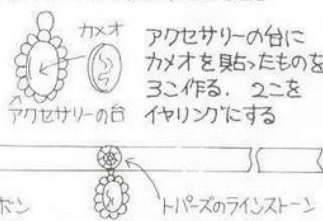 カメオ
アクセサリーの台
アクセサリーの台に
カメオを貼ったものを
3こ作る. 2こを
イヤリングにする
ボン
トパーズのラインストーン